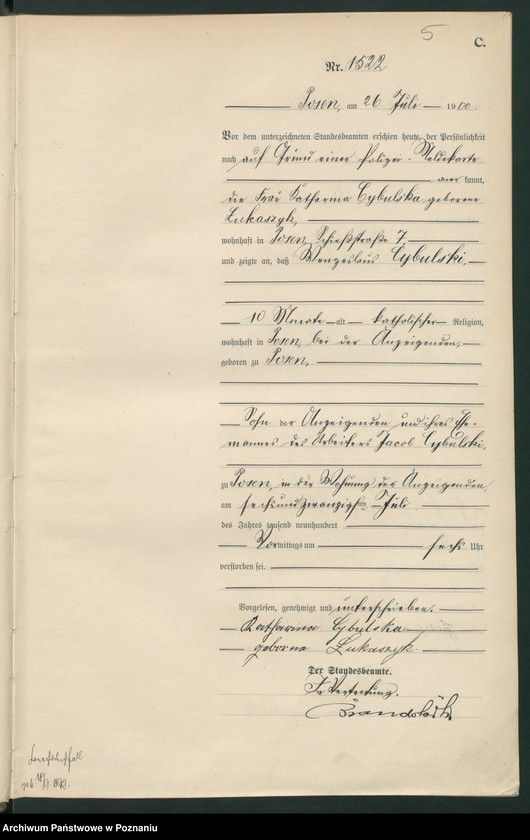 5
C.
Nr. 1522
Posen, am 26 Juli 1900.
Vor dem unterzeichneten Standesbeamten erschien heute, der Persönlichkeit
nach auf Grund einer Polizei-Meldekarte
anerkannt,
die Frau Katharina Cybulska geborene
Lukaszyk,
wohnhaft in Posen, Schießstraße 7,
und zeigte an, daß Wenzeslaus Cybulski,
10 Monate alt katholischer Religion,
wohnhaft in Posen, bei der Anzeigenden,
geboren zu Posen,
Sohn der Anzeigenden und ihres Ehe-
mannes des Arbeiters Jacob Cybulski,
zu Posen, in der Wohnung der Anzeigenden,
am sechsundzwanzigsten Juli
des Jahres tausend neunhundert
Vormittags um sechs Uhr
verstorben sei.
Vorgelesen, genehmigt und unterschrieben.
Katharina Cybulska
geborne Lukaszyk
Der Standesbeamte.
In Vertretung.
Archiwum Państwowe w Poznaniu